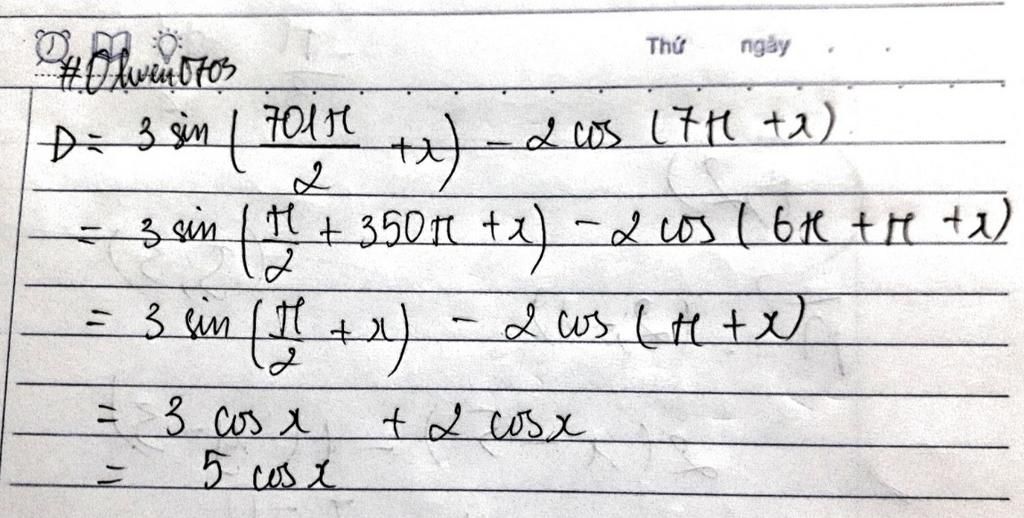 Thứ ngày . .
#Olwen0703
D = 3 sin (701π/2 + x) - 2 cos (7π + x)
= 3 sin (π/2 + 350π + x) - 2 cos (6π + π + x)
= 3 sin (π/2 + x) - 2 cos (π + x)
= 3 cos x + 2 cos x
= 5 cos x